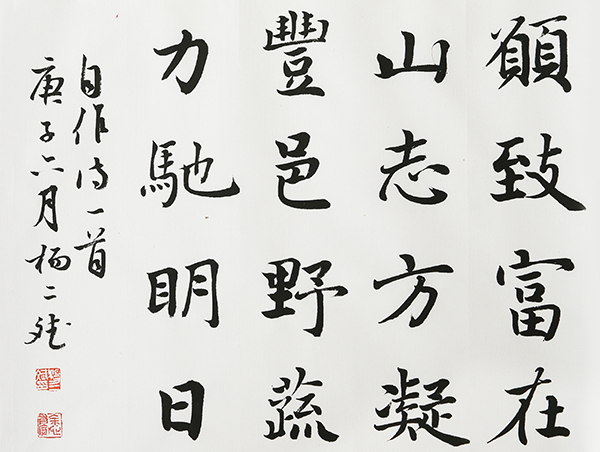 願致富在
山志方凝
豐邑野蔬
力馳明日
自作诗一首
庚子六月杨二斌